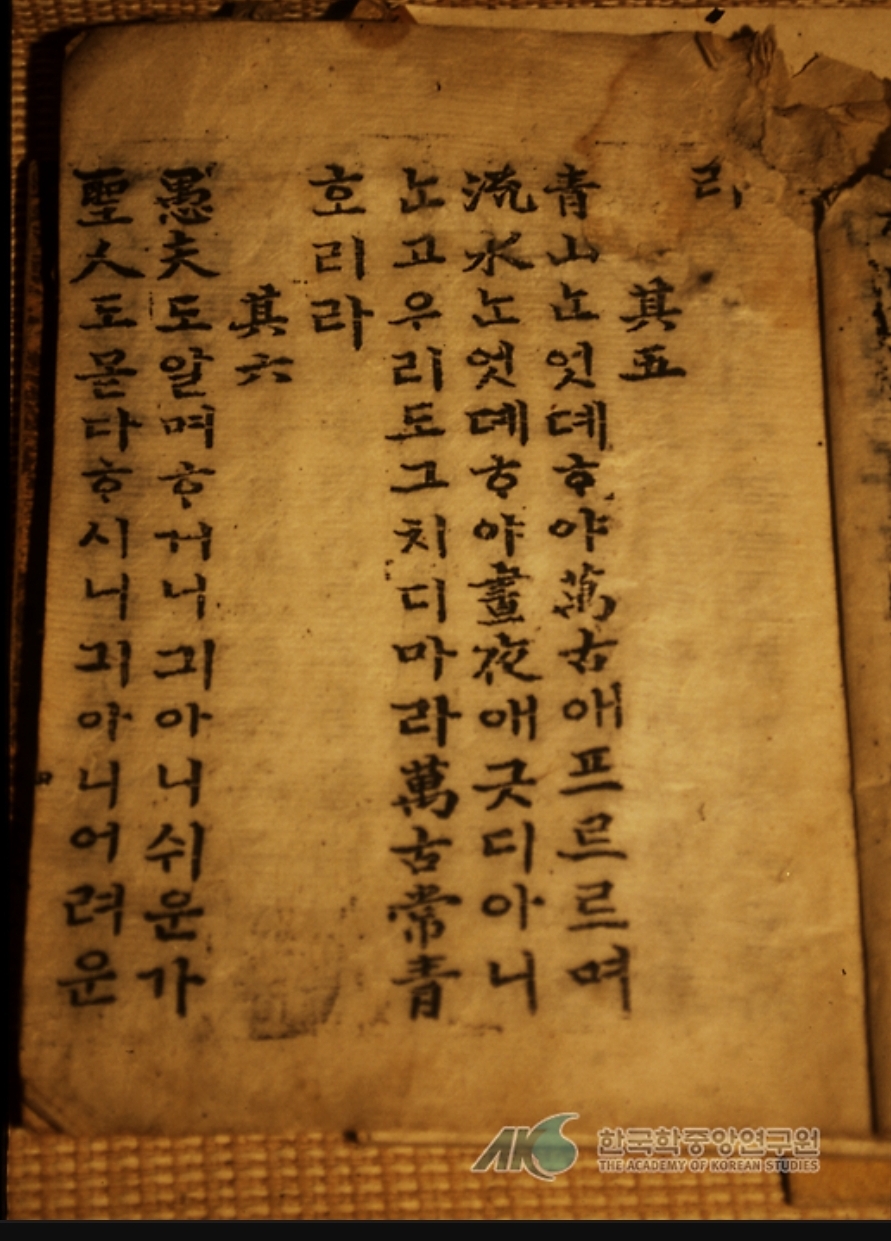 리
其五
靑山ᄂᆞᆫ엇뎨ᄒᆞ야萬古애프르르며
流水ᄂᆞᆫ엇뎨ᄒᆞ야晝夜애긋디아니
ᄂᆞᆫ고우리도그치디마라萬古常靑
호리라
其六
愚夫도알며ᄒᆞ거니긔아니쉬운가
聖人도몯다ᄒᆞ시니긔아니어려운
AKS 한국학중앙연구원
THE ACADEMY OF KOREAN STUDIES